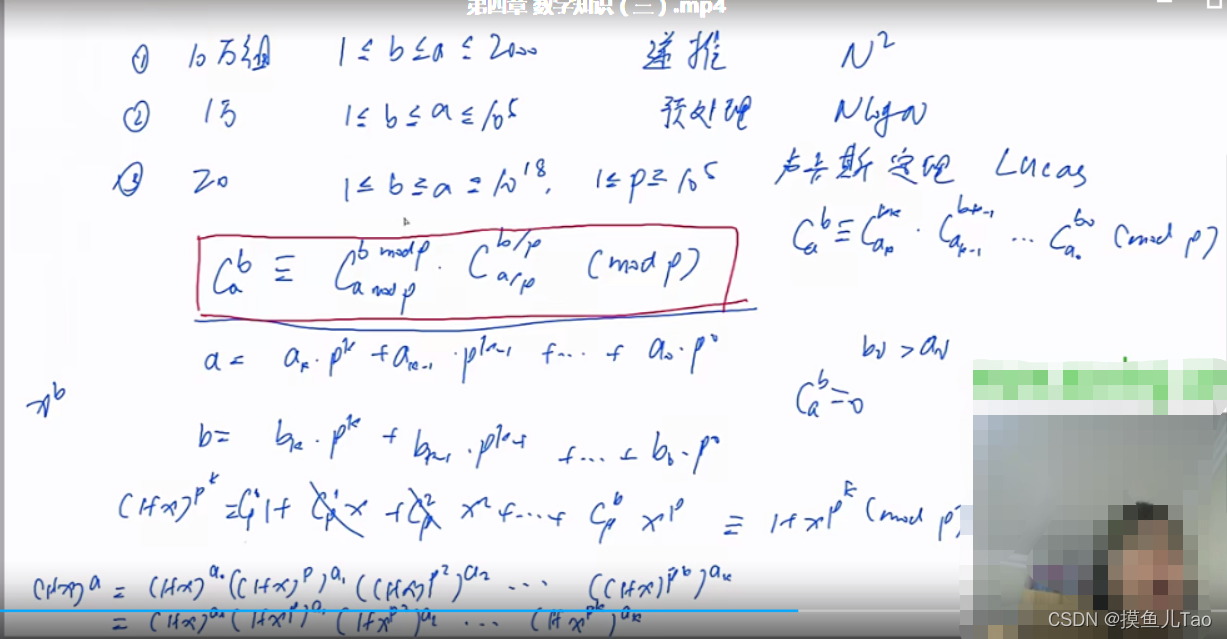 第四章 数学知识（三）.mp4
① 10万组 1 ≤ b ≤ a ≤ 2000 递推 N²
② 1万 1 ≤ b ≤ a ≤ 10⁵ 预处理 NlogN
③ 20 1 ≤ b ≤ a ≤ 10¹⁸, 1 ≤ p ≤ 10⁵ 卢卡斯定理 Lucas
C_a^b ≡ C_{a_k}^{b_k} · C_{a_{k-1}}^{b_{k-1}} ... C_{a_0}^{b_0} (mod p)
C_a^b ≡ C_{a mod p}^{b mod p} · C_{a/p}^{b/p} (mod p)
a = a_k · p^k + a_{k-1} · p^{k-1} + ... + a_0 · p^0
C_a^b = 0
x^b
b = b_k · p^k + b_{k-1} · p^{k-1} + ... + b_0 · p^0
(1+x)^{p^k} = 1 + C_p^1 x + C_p^2 x² + ... + x^p ≡ 1 + x^{p^k} (mod p)
(1+x)^a = (1+x)^{a_0} ((1+x)^p)^{a_1} ((1+x)^{p^2})^{a_2} ... ((1+x)^{p^k})^{a_k}
= (1+x)^{a_0} (1+x^p)^{a_1} (1+x^{p^2})^{a_2} ... (1+x^{p^k})^{a_k}
CSDN @摸鱼儿Tao